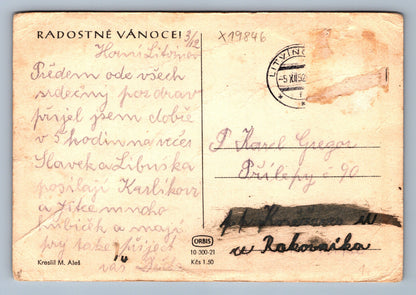 RADOSTNÉ VÁNOCE!
3/12
X19846
Horní Litvínov
Předem ode všech
srdečný pozdrav
přijel jsem dobře
v 5 hodin na večer
Slávek a Libuška
posílají Karlíkovi
a Jitce mnoho
hubiček a mají
prý také přijet
váš
LITVÍNO
-5.XII.52
P Karel Gregor
Přílepy č 90
u Rakovníka
ORBIS
10-300-21
Kčs 1.50
Kreslil M. Aleš